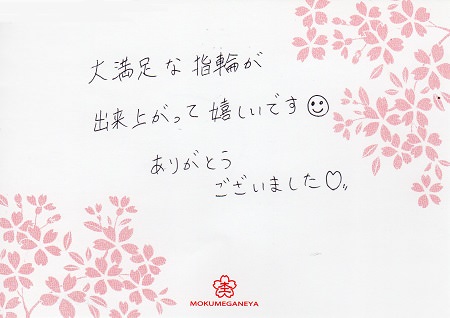 大満足な指輪が
出来上がって嬉しいです☺
ありがとう
ございました♡〃
MOKUMEGANEYA